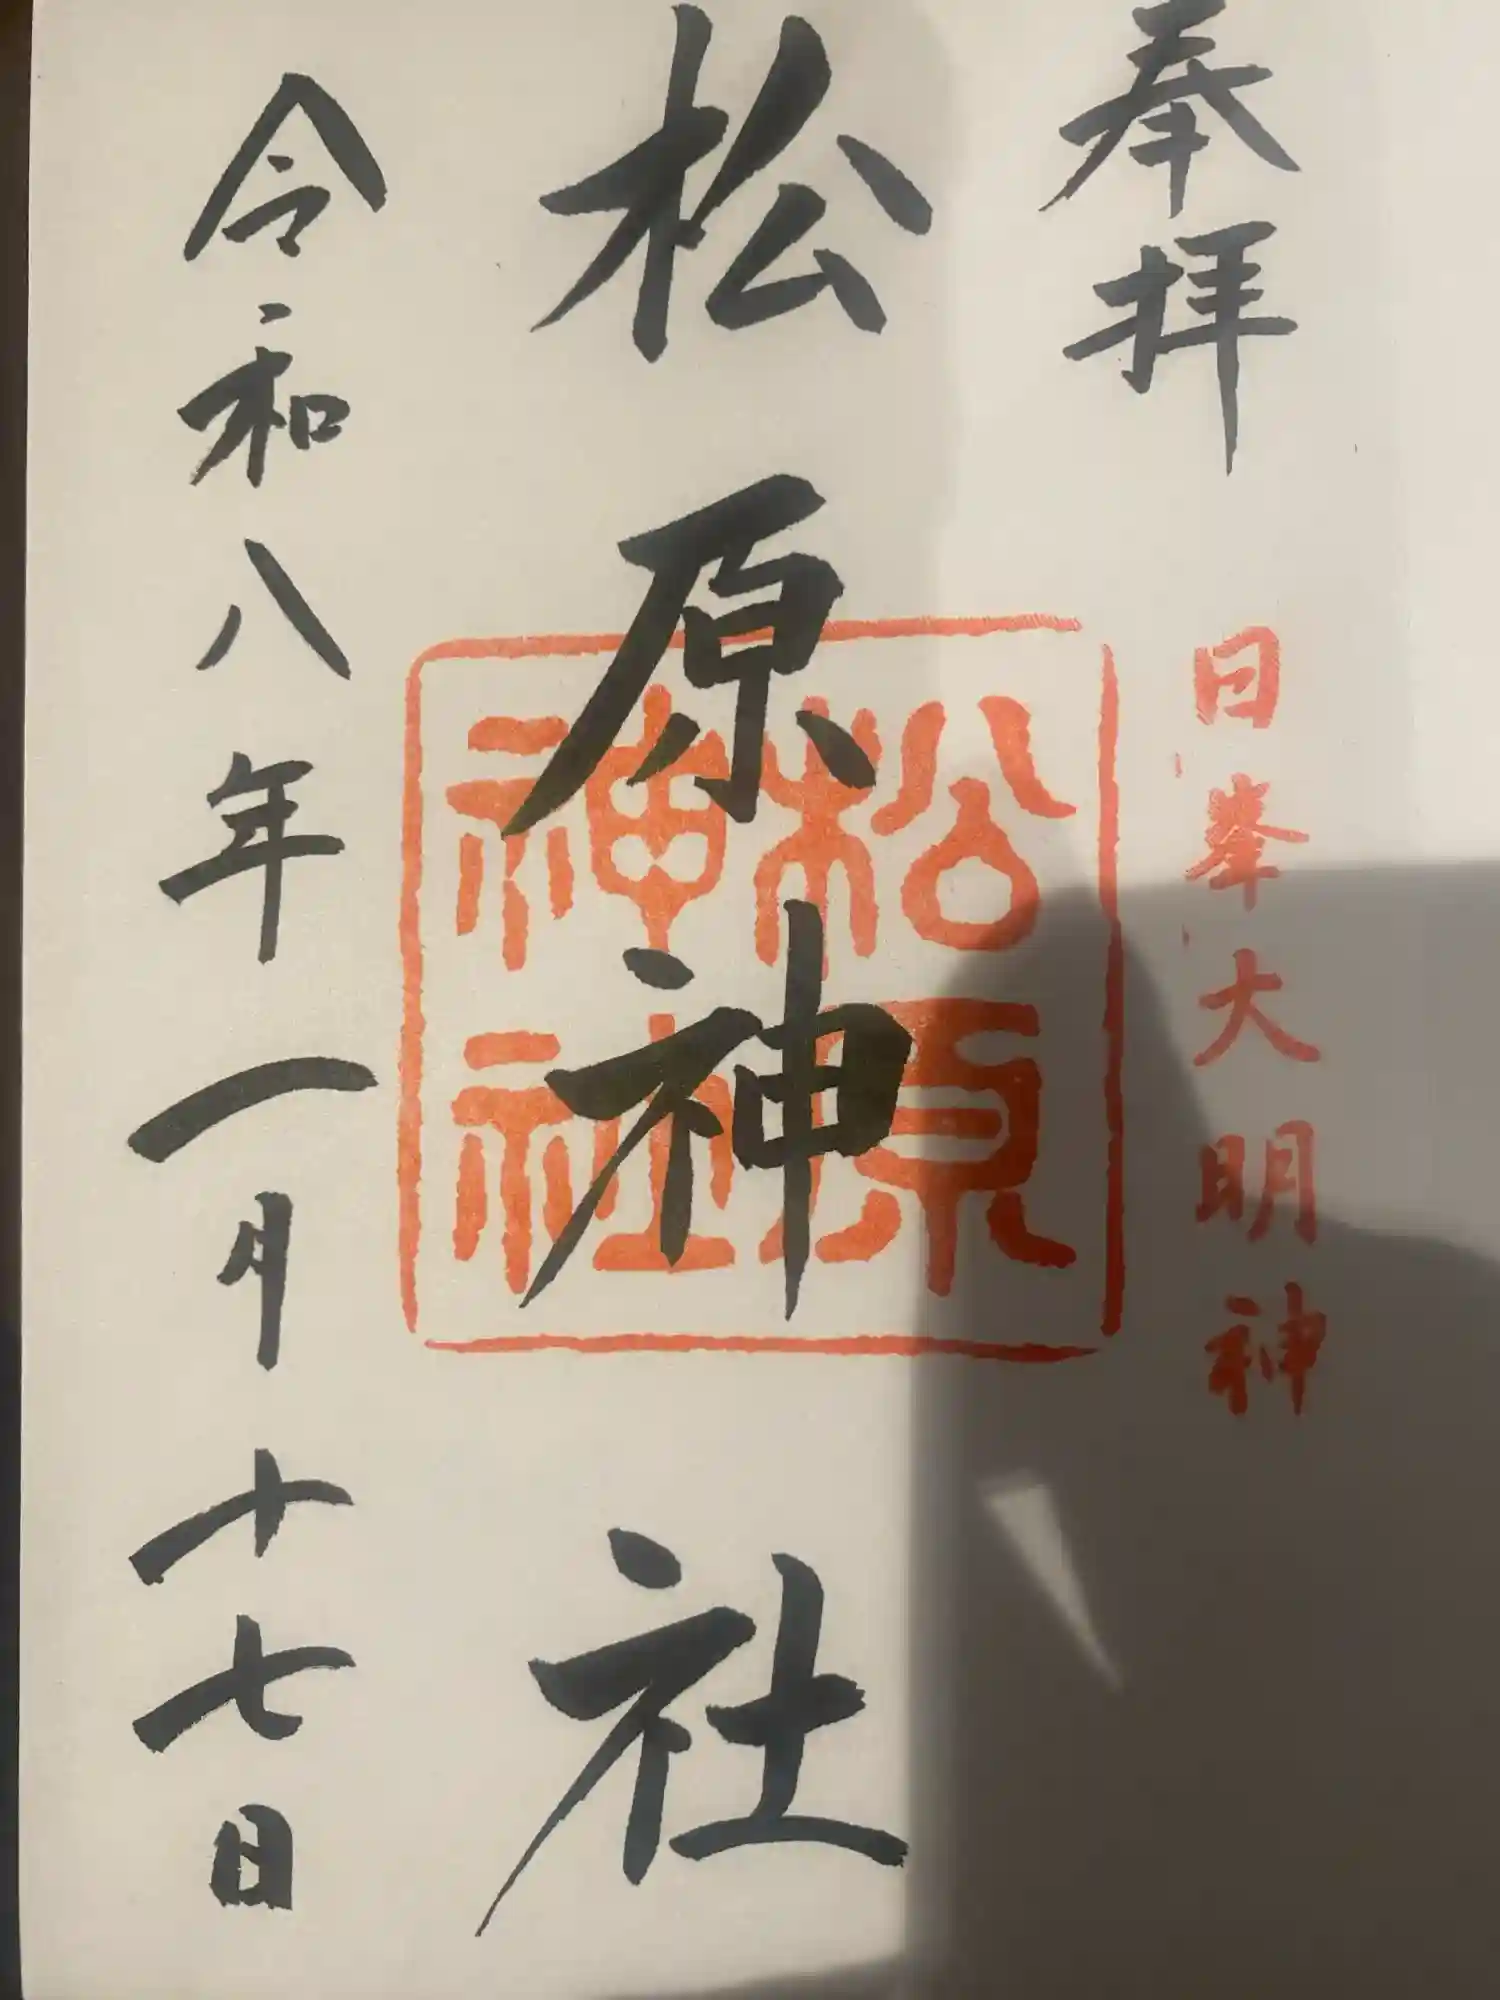 奉拝
日峯大明神
松原神社
松原神社
令和八年一月十七日